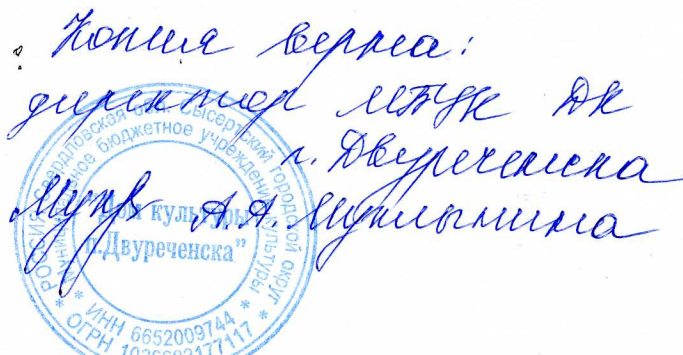 Копия верна:
директор МБУК ДК
п. Двуреченска
А.А. Мухлынина
РОССИЯ Свердловская обл. Сысертский городской округ
Муниципальное бюджетное учреждение культуры
"Дом культуры
п.Двуреченска"
* ИНН 6652009744 *
* ОГРН 1036602177117 *